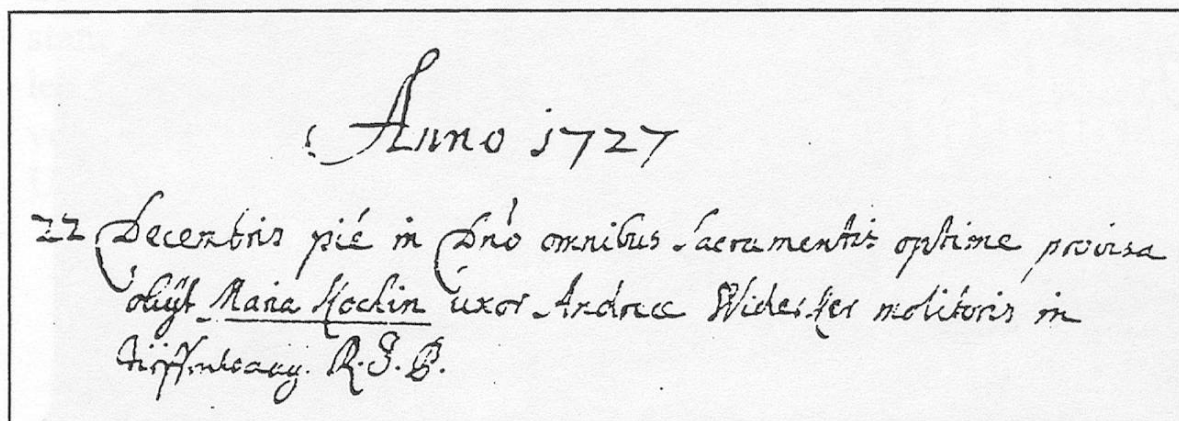 Anno 1727
22 Decembris pié in Dnò omnibus Sacramentis optime provisa
obijt Maria Kochin uxor Andreae molitoris in
R.I.P.